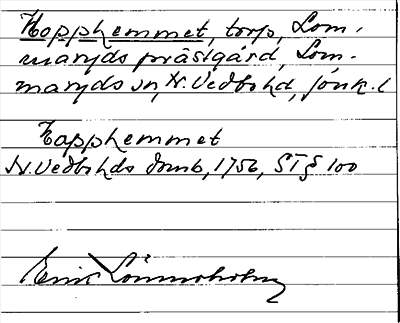 Hopphemmet, torp, Lom-
maryds prästgård, Lom-
maryds sn, N. Vedbo hd, Jönk. l
Hopphemmet
N. Vedbo hds domb, 1756, ST § 100
Erik Lönnerholm